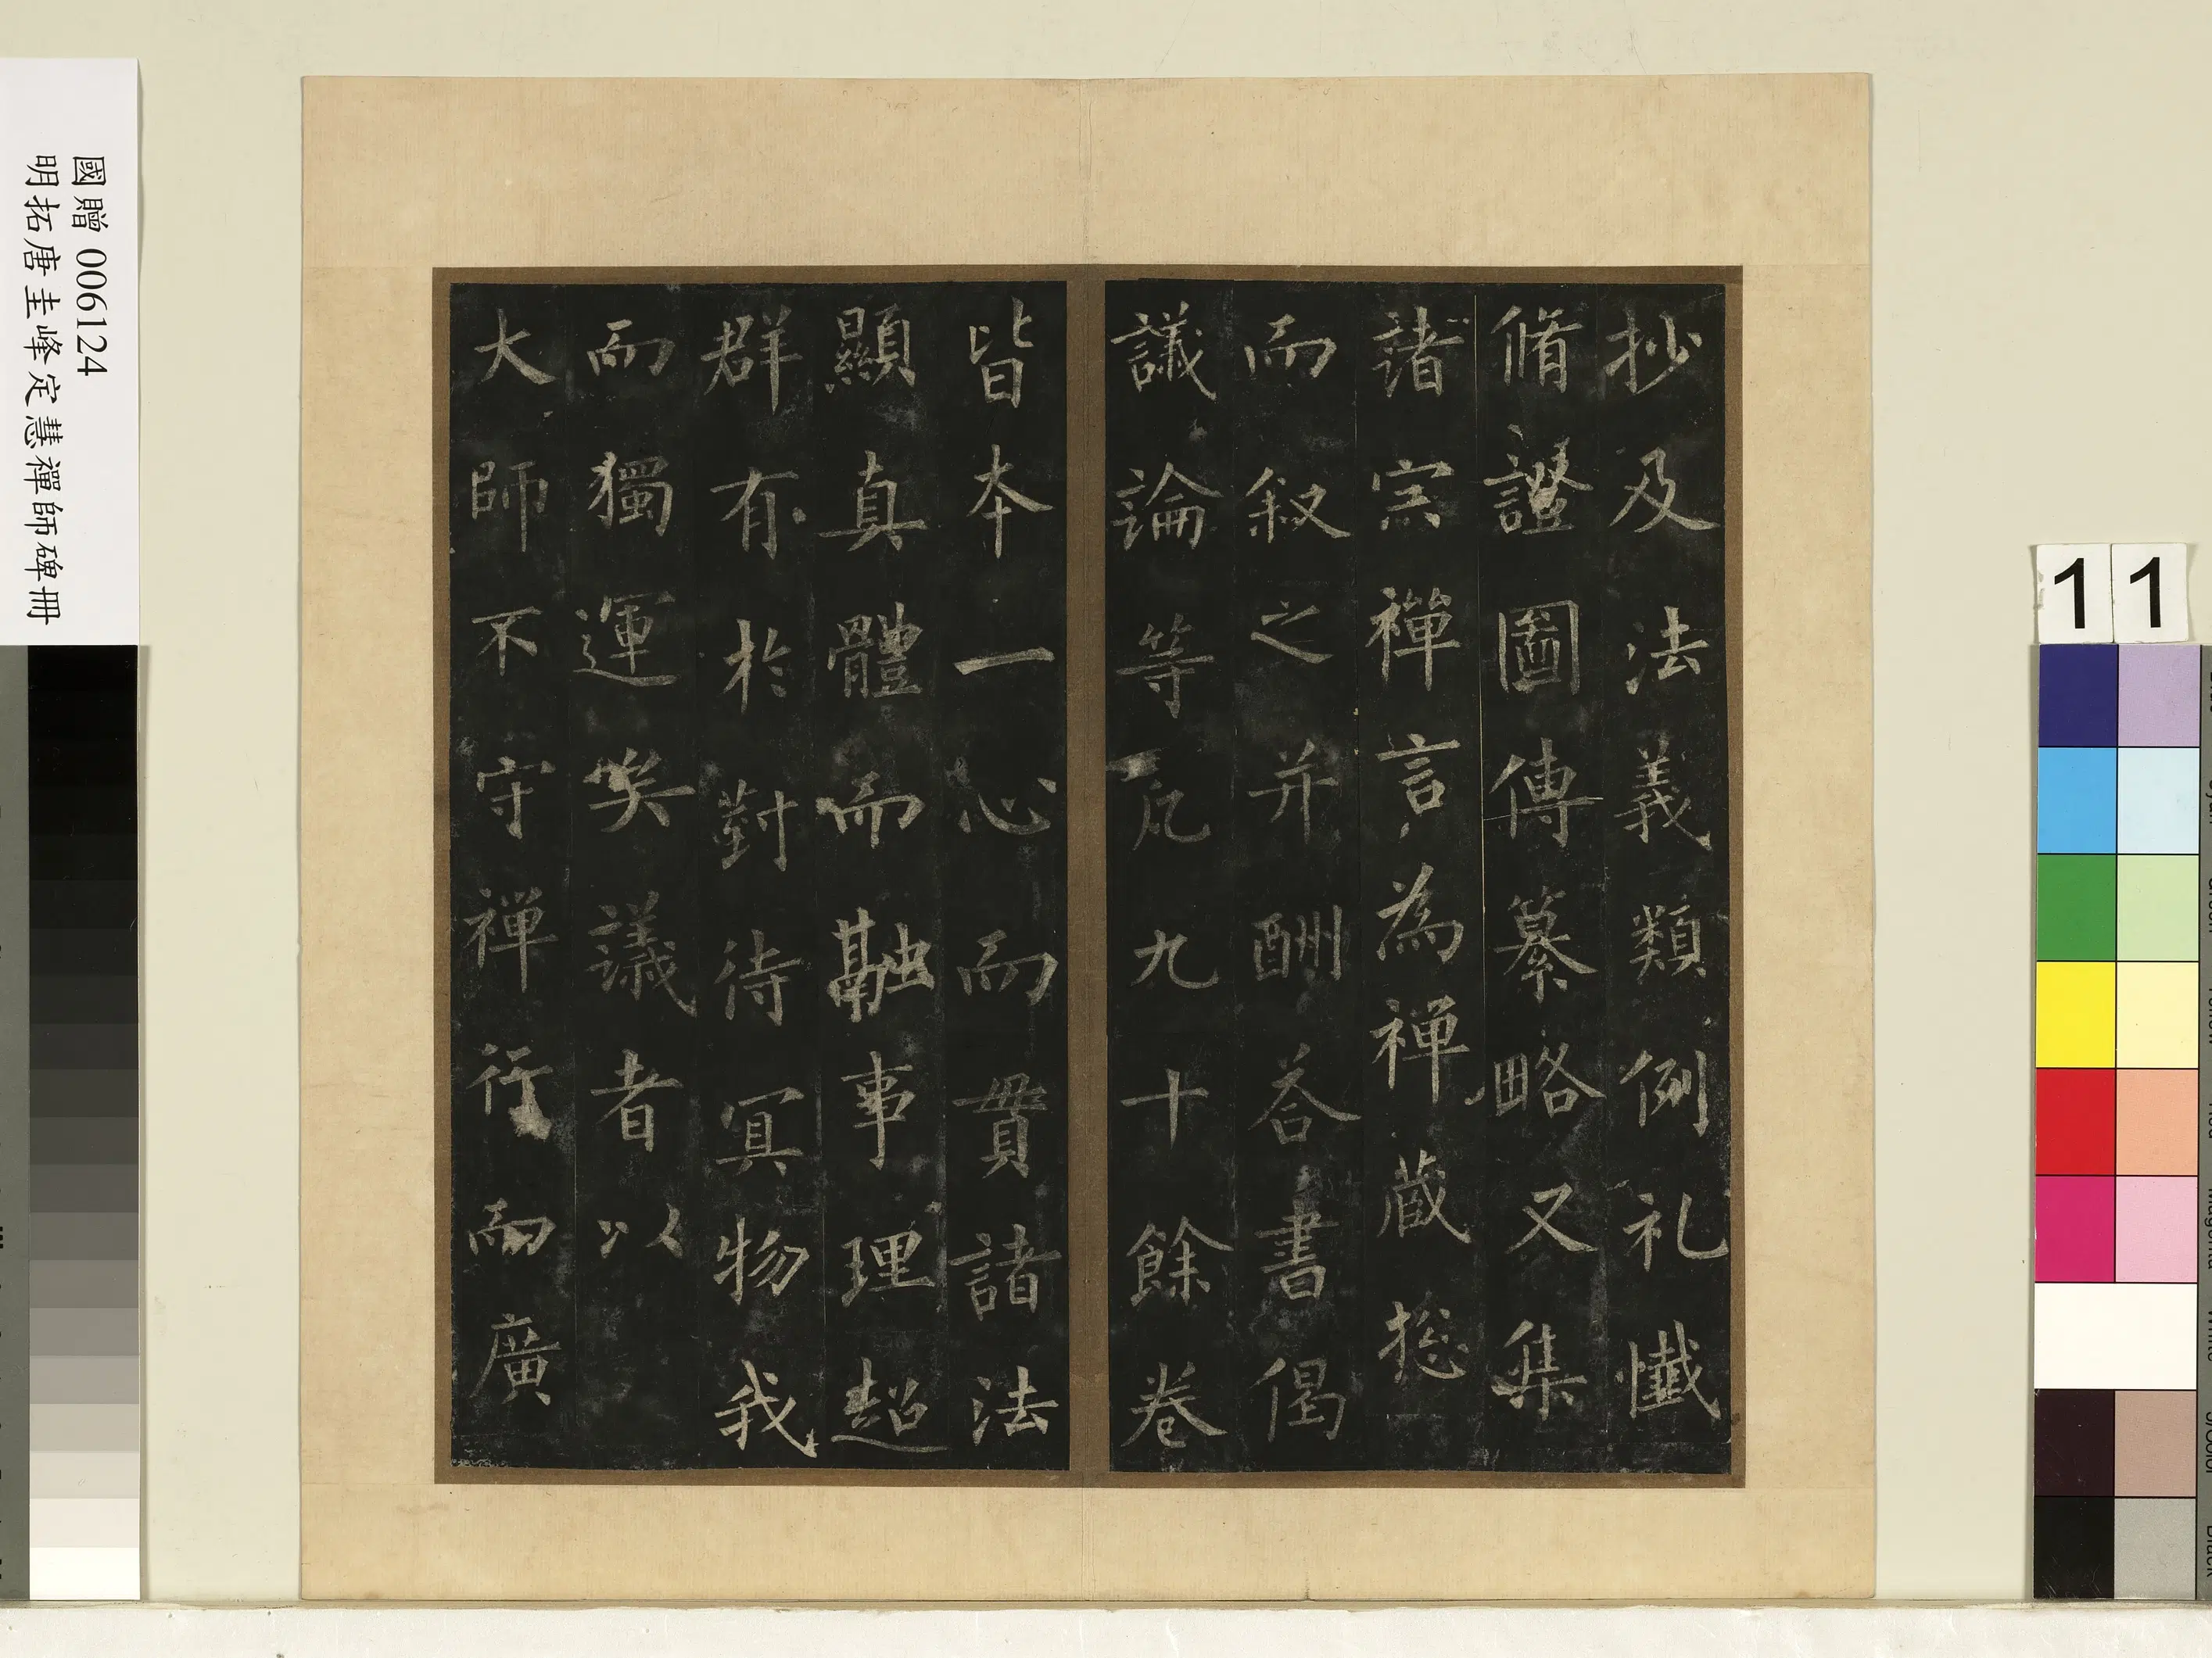 國贈 006124
明拓唐圭峰定慧禪師碑冊
抄及法義類例礼懴
脩證圖傳纂略又集
諸宗禪言為禪蔵揔
而叙之并酬荅書偈
議論等凡九十餘卷
皆本一心而貫諸法
顯真體而融事理超
群有於對待冥物我
而獨運矣議者以
大師不守禪行而廣
11